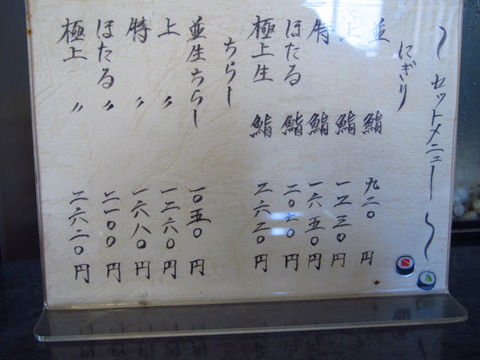 ～セットメニュー～
にぎり
並 鮨 九二〇 円
上 鮨 一二三〇 円
特 鮨 一六五〇 円
ほたる 鮨 二〇七〇 円
極上生 鮨 二六二〇 円
ちらし
並生ちらし 一〇五〇 円
上 〃 一二六〇 円
特 〃 一六八〇 円
ほたる 〃 二一〇〇 円
極上 〃 二六二〇 円